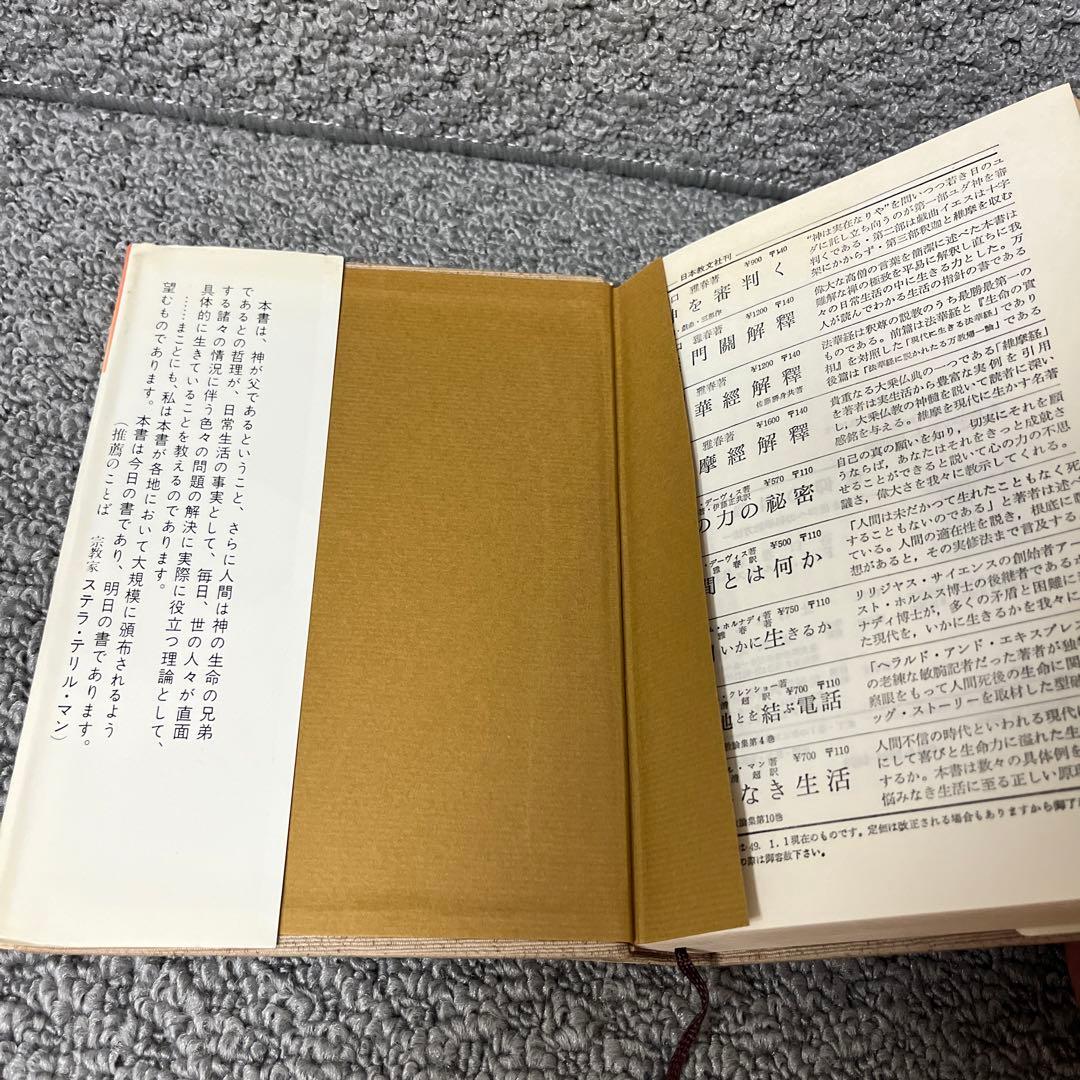 本書は、神が父であるということ、さらに人間は神の生命の兄弟
であるとの哲理が、日常生活の事実として、毎日、世の人々が直面
する諸々の情況に伴う色々の問題の解決に実際に役立つ理論として、
具体的に生きていることを教えるのであります。
……まことにも、私は本書が各地において大規模に頒布されるよう
望むものであります。本書は今日の書であり、明日の書であります。
(推薦のことば 宗教家 ステラ・テリル・マン)
日本教文社刊
雅春著 ¥900 〒140
を審判く
戯曲・三部作
"神は実在なりや"を問いつつ若き日のユ
ダに託し立ち向うのが第一部ユダ神を審
判くである・第二部は戯曲イエスは十字
架にかからず・第三部釈迦と維摩を収む
雅春著 ¥1200 〒140
門關解釋
偉大な高僧の言葉を簡潔に述べた本書は
難解な禅の極致を平易に解釈し直ちに我
々の日常生活の中に生きる力とした。万
人が読んでわかる生活の指針の書である
雅春著 ¥1200 〒140
華經解釋
佐藤勝身共著
法華経は釈尊の説教のうち最勝最第一の
ものである。前篇は法華経と『生命の實
相』を対照した「現代に生きる法華経」であり
後篇は「法華経に説かれたる万教帰一論」である
雅春著 ¥1600 〒140
摩經解釋
貴重なる大乗仏典の一である「維摩経」
を著者は実生活から豊富な実例を引用
し、大乗仏教の神髄を説いて読者に深い
感銘を与える。維摩を現代に生かす名著
デーヴィス著 ¥570 〒110
の力の祕密
自己の真の願いを知り、切実にそれを願
うならば、あなたはそれをきっと成就さ
せることができると説いて心の力の不思
議さ、偉大さを我々に教示してくれる。
デーヴィス著 ¥500 〒110
雅春訳
間とは何か
「人間は未だかつて生れたこともなく死
することもないのである」と著者は述べ
ている。人間の適在性を説き、根底に瞑
想があると、その実修法まで言及する
ム・ホルナディ著 ¥750 〒110
雅春著
いかに生きるか
リリジャス・サイエンスの創始者アー
スト・ホルムス博士の後継者であるホ
ナディ博士が、多くの矛盾と困難に
た現代を，いかに生きるかを我々に
クレンショー著 ¥700 〒110
超訳
地とを結ぶ電話
「ヘラルド・アンド・エキスプレス
の老練な敏腕記者だった著者が独
察眼をもって人間死後の生命に関
ッグ・ストーリーを取材した型破
論集第4巻
ル・マン著 ¥700 〒110
超訳
なき生活
人間不信の時代といわれる現代に
にして喜びと生命力に溢れた生
するか。本書は数々の具体例を
悩みなき生活に至る正しい原理
論集第10巻
49. 1. 1現在のものです。定価は改正される場合もありますから御了
の際は御容赦下さい。